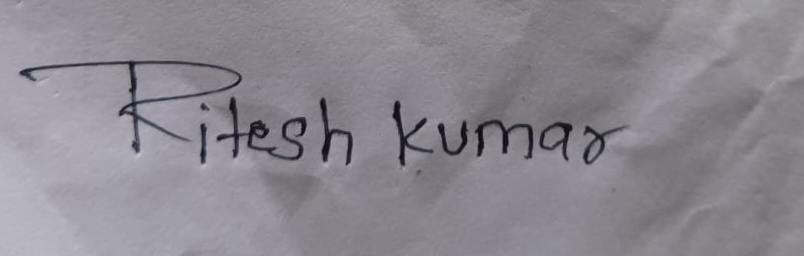 Ritesh kumar